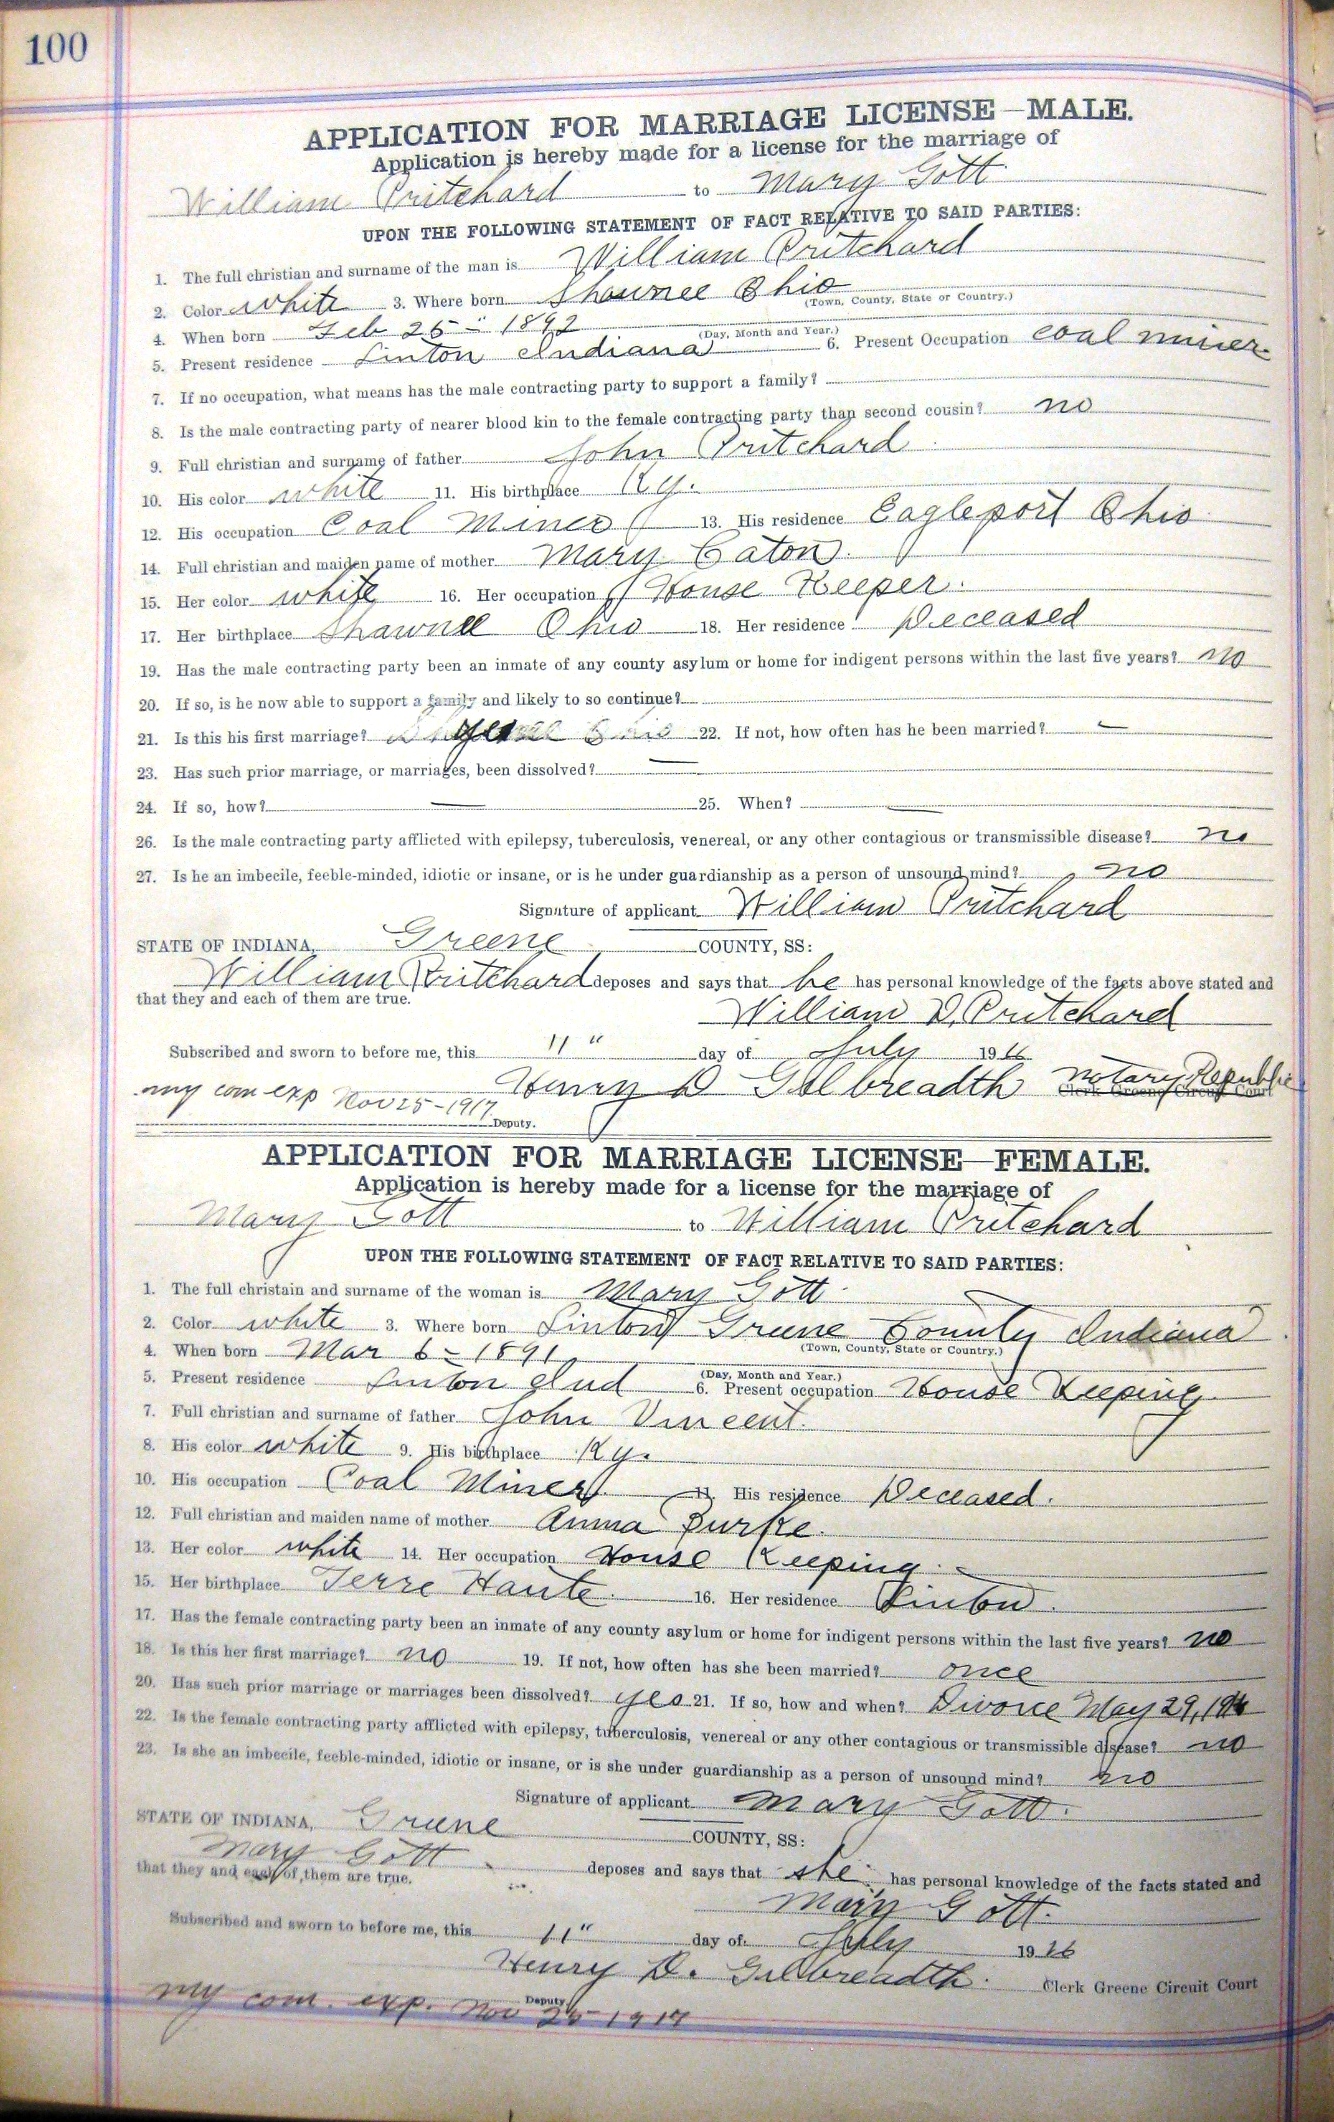 100
APPLICATION FOR MARRIAGE LICENSE—MALE.
Application is hereby made for a license for the marriage of
William Pritchard to Mary Gott
UPON THE FOLLOWING STATEMENT OF FACT RELATIVE TO SAID PARTIES:
1. The full christian and surname of the man is William Pritchard
2. Color white 3. Where born Shawnee Ohio
(Town, County, State or Country.)
4. When born Feb 25 - 1892
(Day, Month and Year.)
5. Present residence Linton Indiana 6. Present Occupation coal miner
7. If no occupation, what means has the male contracting party to support a family?
8. Is the male contracting party of nearer blood kin to the female contracting party than second cousin? no
9. Full christian and surname of father John Pritchard
10. His color white 11. His birthplace Ky.
12. His occupation Coal Miner 13. His residence Eagleport Ohio
14. Full christian and maiden name of mother Mary Caton
15. Her color white 16. Her occupation House Keeper.
17. Her birthplace Shawnee Ohio 18. Her residence Deceased
19. Has the male contracting party been an inmate of any county asylum or home for indigent persons within the last five years? no
20. If so, is he now able to support a family and likely to so continue?
21. Is this his first marriage? yes 22. If not, how often has he been married? —
23. Has such prior marriage, or marriages, been dissolved? —
24. If so, how? — 25. When? —
26. Is the male contracting party afflicted with epilepsy, tuberculosis, venereal, or any other contagious or transmissible disease? no
27. Is he an imbecile, feeble-minded, idiotic or insane, or is he under guardianship as a person of unsound mind? no
Signature of applicant William Pritchard
STATE OF INDIANA, Greene COUNTY, SS:
William Pritchard deposes and says that he has personal knowledge of the facts above stated and
that they and each of them are true.
William D. Pritchard
Subscribed and sworn to before me, this 11" day of July 1916
Henry D Gilbreadth Notary Republic
Clerk Greene Circuit Court
my com exp Nov 25-1917
Deputy.
APPLICATION FOR MARRIAGE LICENSE—FEMALE.
Application is hereby made for a license for the marriage of
Mary Gott to William Pritchard
UPON THE FOLLOWING STATEMENT OF FACT RELATIVE TO SAID PARTIES:
1. The full christain and surname of the woman is Mary Gott
2. Color white 3. Where born Linton Greene County Indiana
(Town, County, State or Country.)
4. When born Mar 6 - 1891
(Day, Month and Year.)
5. Present residence Linton Ind 6. Present occupation House Keeping
7. Full christian and surname of father John Vincent.
8. His color white 9. His birthplace Ky.
10. His occupation Coal Miner 11. His residence Deceased.
12. Full christian and maiden name of mother Anna Burke.
13. Her color white 14. Her occupation House Keeping
15. Her birthplace Terre Haute 16. Her residence Linton.
17. Has the female contracting party been an inmate of any county asylum or home for indigent persons within the last five years? no
18. Is this her first marriage? no 19. If not, how often has she been married? once
20. Has such prior marriage or marriages been dissolved? yes 21. If so, how and when? Divorce May 29, 1916
22. Is the female contracting party afflicted with epilepsy, tuberculosis, venereal or any other contagious or transmissible disease? no
23. Is she an imbecile, feeble-minded, idiotic or insane, or is she under guardianship as a person of unsound mind? no
Signature of applicant Mary Gott.
STATE OF INDIANA, Greene COUNTY, SS:
Mary Gott deposes and says that she has personal knowledge of the facts stated and
that they and each of them are true.
Mary Gott.
Subscribed and sworn to before me, this 11" day of July 1916
Henry D. Gilbreadth. Clerk Greene Circuit Court
Deputy
my com. exp. Nov 25 1917